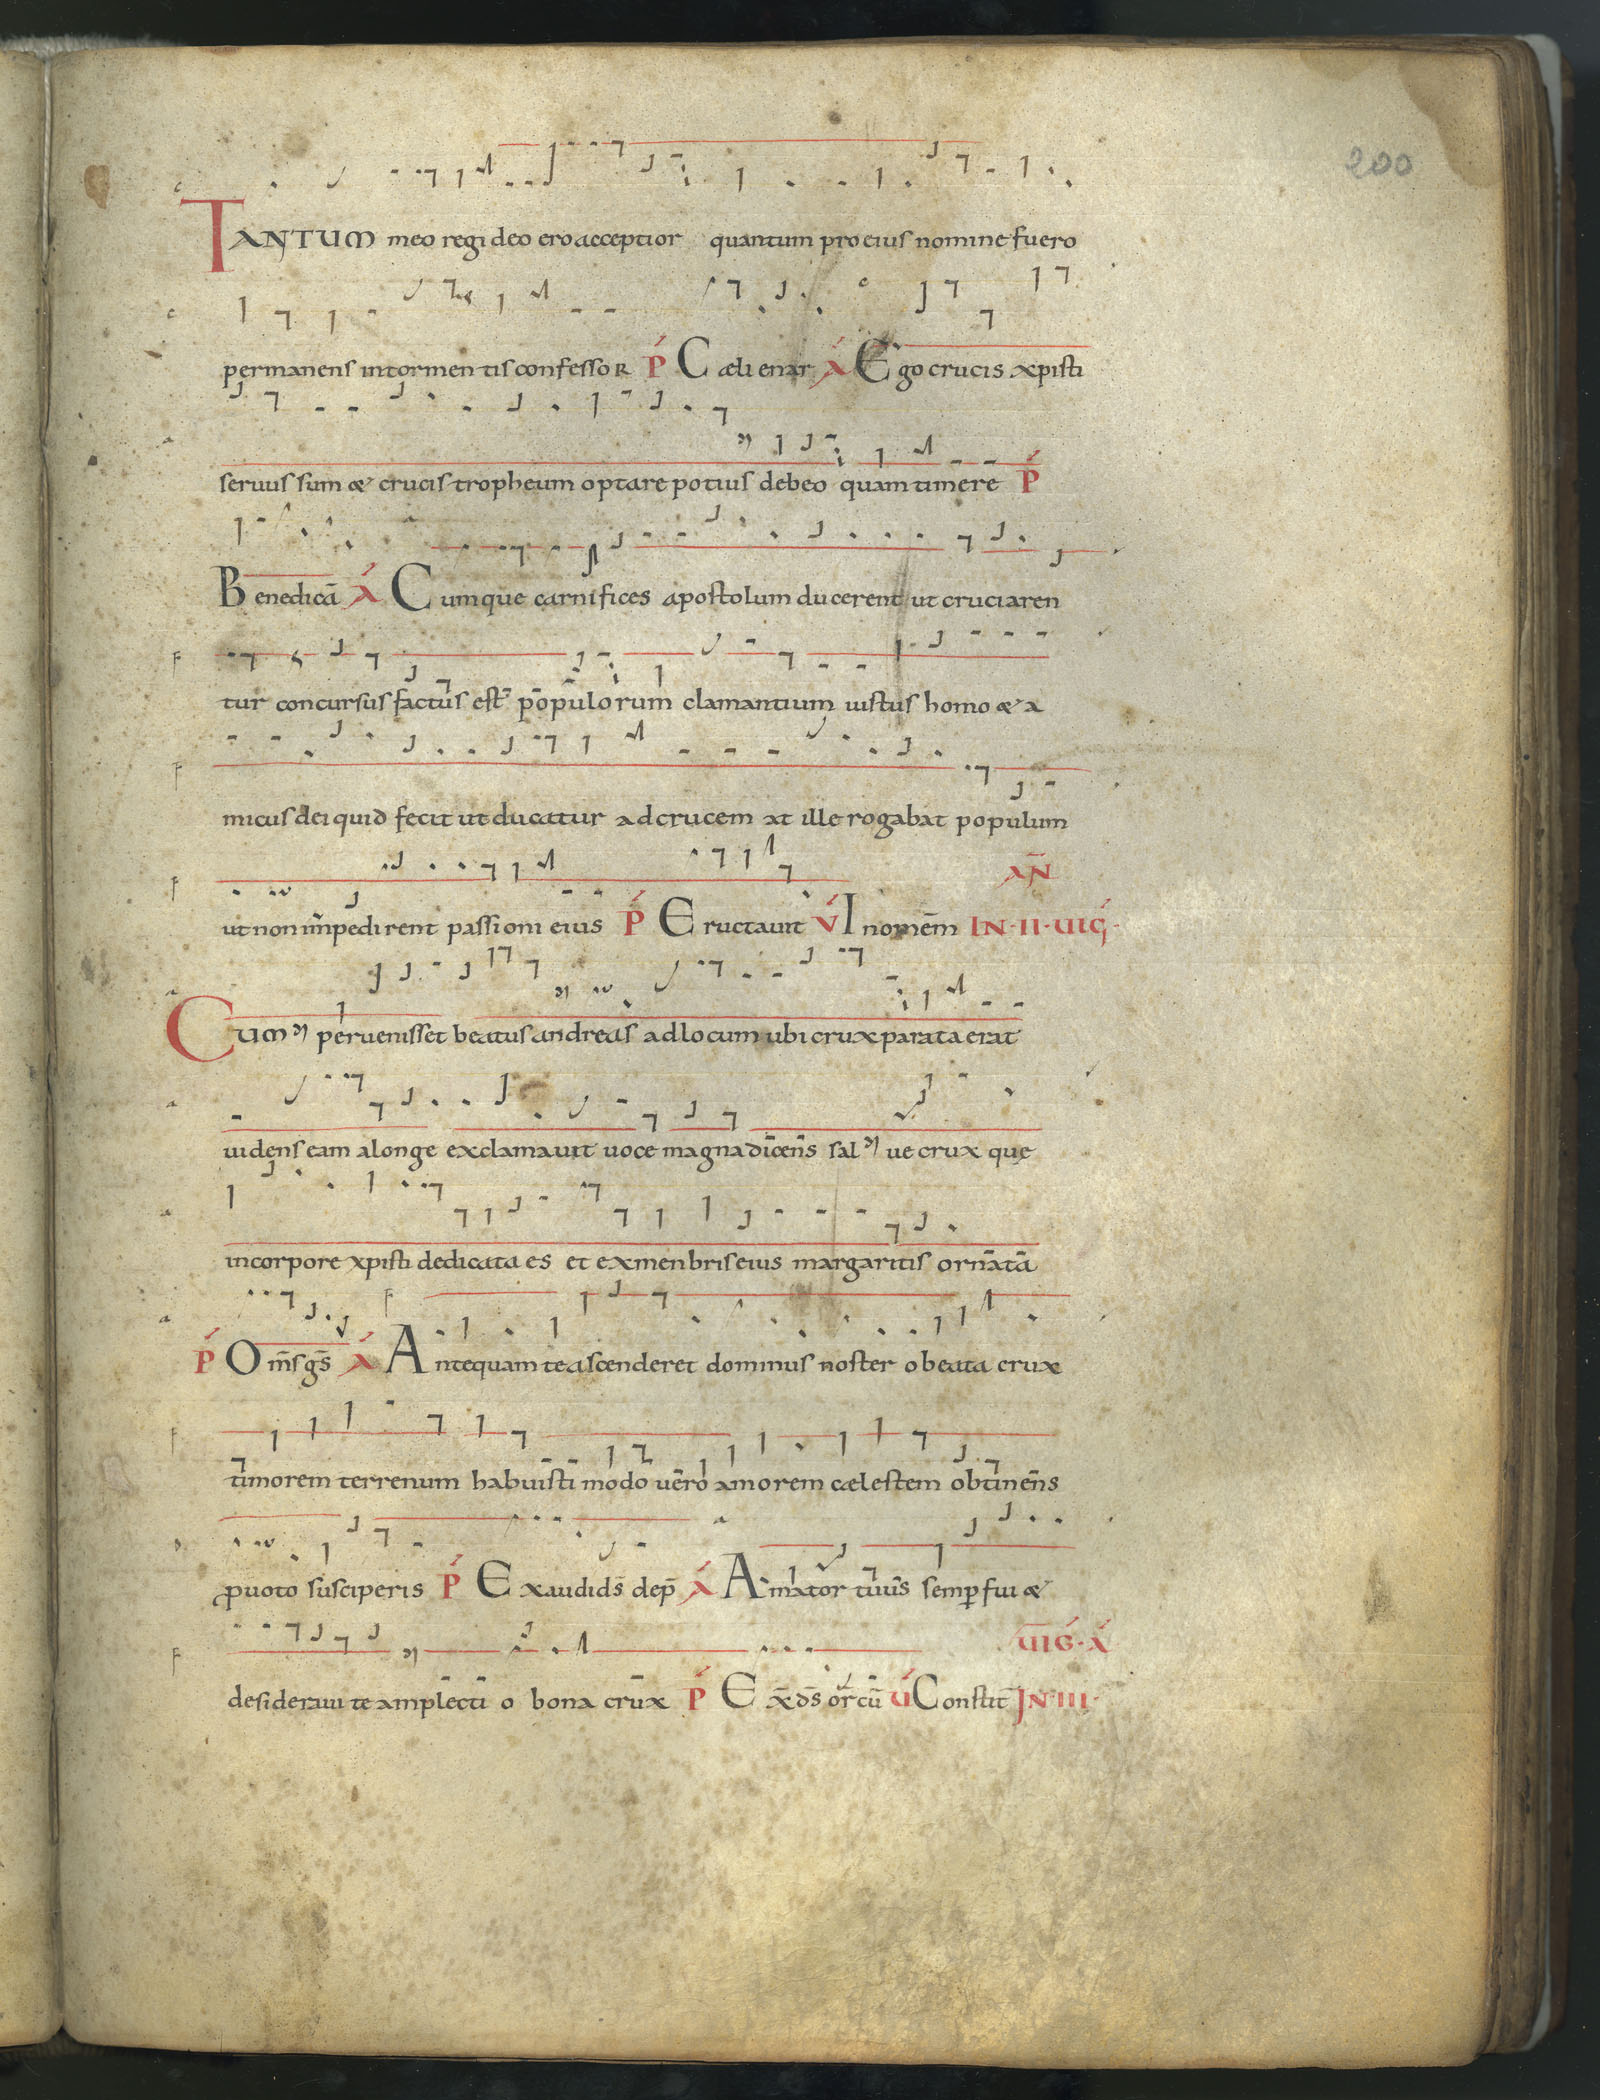 200
TANTUM meo regi deo ero acceptior quantum pro eius nomine fuero
permanens in tormentis confessor P Caeli enar A Ego crucis xpisti
seruus sum & crucis tropheum optare potius debeo quam timere P
Benedicā A Cumque carnifices apostolum ducerent ut cruciaren
tur concursus factus est populorum clamantium iustus homo & a
micus dei quid fecit ut ducatur ad crucem at ille rogabat populum
AN̄
ut non impedirent passioni eius P Eructauit V I nomēm IN·II·UIG·
CUM peruenisset beatus andreas ad locum ubi crux parata erat
uidens eam a longe exclamauit uoce magna dicens salue crux quę
in corpore xpisti dedicata es et ex menbris eius margaritis ornata
P Om̄s gs̄ A Antequam te ascenderet dominus noster o beata crux
timorem terrenum habuisti modo uero amorem caelestem obtinens
ꝓ uoto susciperis P Exaudi ds̄ dep̄ A Amator tuus semp fui &
UIG·A
desideraui te amplecti o bona crux P Ex̄ ds̄ or̄ cū V Constit̄ IN·III·